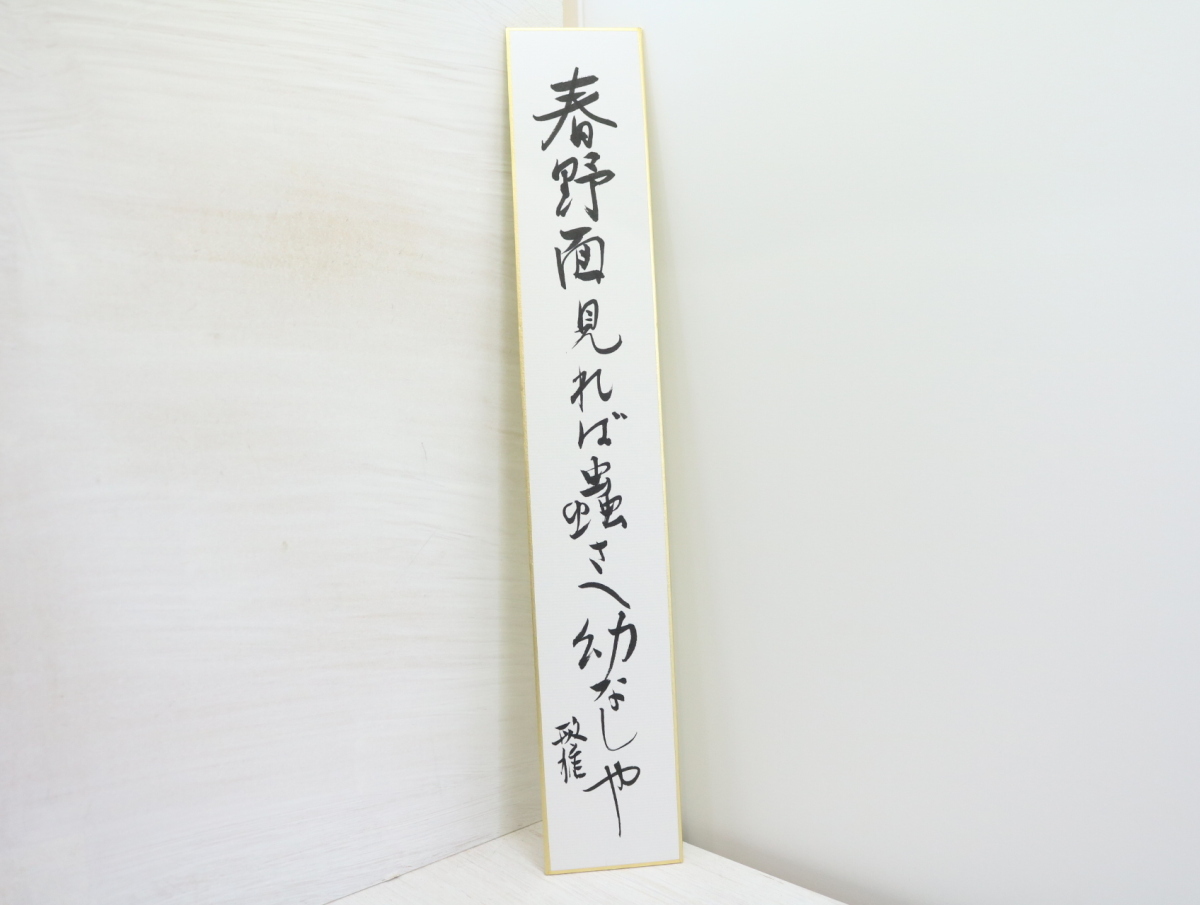 春野面見れば蟲さへ幼なしや
政雄